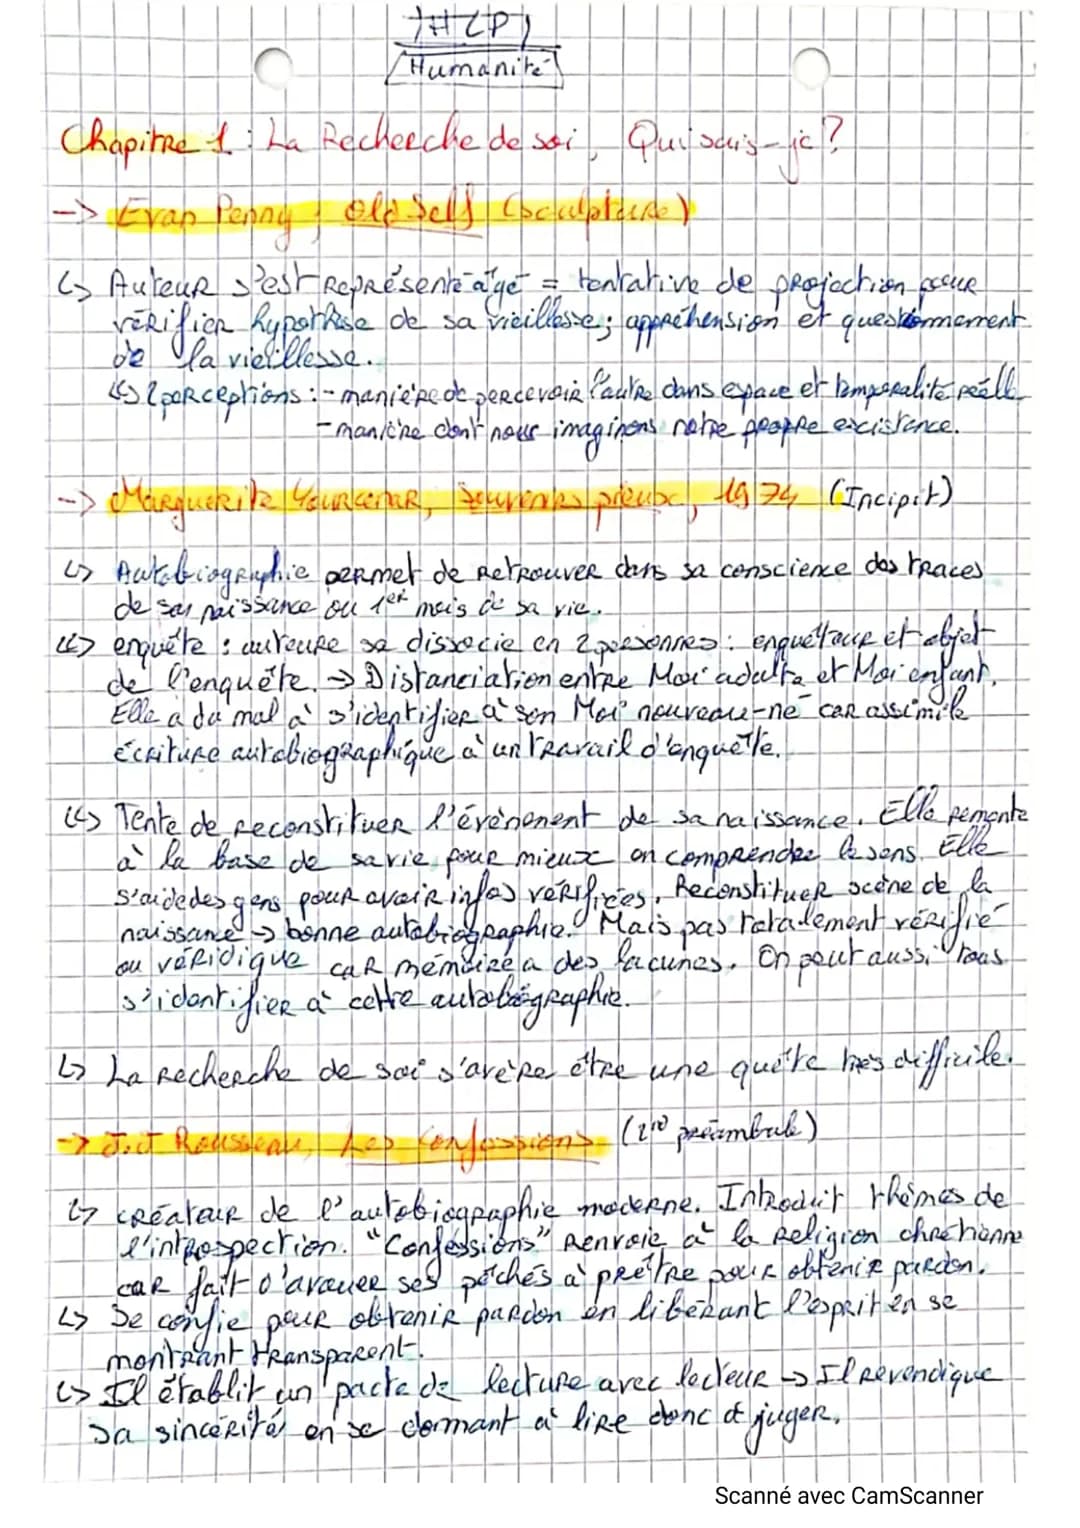 HLP
Humanité
Chapitre 1 : La Recherche de soi, Qui suis-je ?
-> Evan Penny, Old Self (sculpture)
↳ Auteur s'est représenté âgé = tentative de projection pour
vérifier hypothèse de sa vieillesse ; appréhension et questionnement
de la vieillesse.
↳ 2 perceptions : - manière de percevoir l'autre dans espace et temporalité réelle
- manière dont nous imaginons notre propre existance.
-> Marguerite Yourcenar, Souvenirs pieux, 1974 (Incipit)
↳ Autobiographie permet de retrouver dans sa conscience des traces
de sa naissance ou 1er mois de sa vie.
↳ enquête : auteure se dissocie en 2 personnes : enquêteur et objet
de l'enquête. → Distanciation entre Moi adulte et Moi enfant.
Elle a du mal à s'identifier à son Moi nouveau-né car assimile
écriture autobiographique à un travail d'enquête.
↳ Tente de reconstituer l'événement de sa naissance. Elle remonte
à la base de sa vie pour mieux en comprendre le sens. Elle
s'aide des gens pour avoir infos vérifiées. Reconstituer scène de la
naissance → bonne autobiographie. Mais pas totalement vérifié
ou véridique car mémoire a des lacunes. On peut aussi tous
s'identifier à cette autobiographie.
↳ La recherche de soi s'avère être une quête très difficile.
-> J.J Rousseau, Les Confessions (préambule)
↳ créateur de l'autobiographie moderne. Introduit thèmes de
l'introspection. "Confessions" renvoie à la religion chrétienne
car fait d'avouer ses péchés à prêtre pour obtenir pardon.
↳ Se confie pour obtenir pardon en libérant l'esprit en se
montrant transparent.
↳ Il établit un pacte de lecture avec lecteur → Il revendique
sa sincérité en se donnant à lire donc à juger.
Scanné avec CamScanner